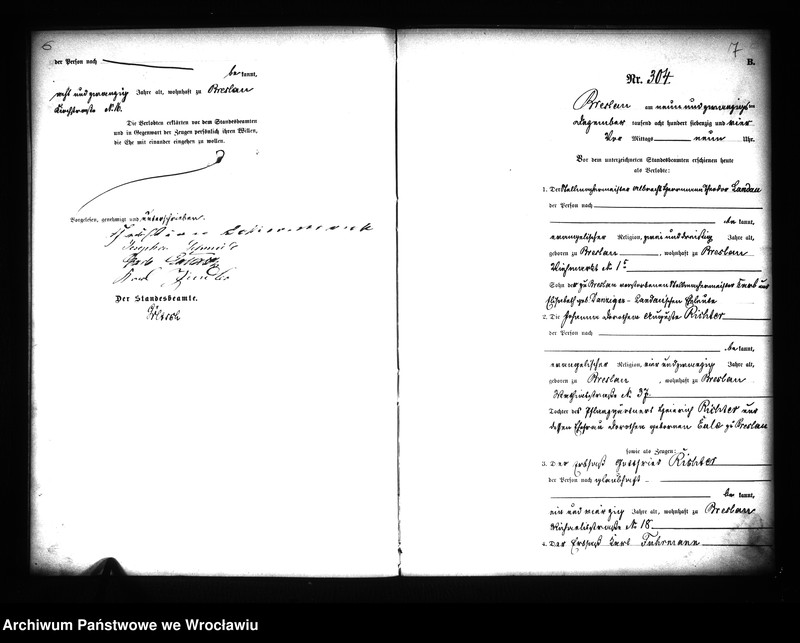 6
der Person nach
be kannt,
acht und zwanzig Jahre alt, wohnhaft zu Breslau
Kirchstraße N.
Die Verlobten erklärten vor dem Standesbeamten
und in Gegenwart der Zeugen persönlich ihren Willen,
die Ehe mit einander eingehen zu wollen.
Vorgelesen, genehmigt und unterschrieben.
Karl
Der Standesbeamte.
7
B.
Nr. 304.
Breslau am neun und zwanzigsten
Dezember tausend acht hundert siebenzig und vier
Vor Mittags neun Uhr.
Vor dem unterzeichneten Standesbeamten erschienen heute
als Verlobte:
1. Der Stellmachermeister Albrecht Herrmann Theodor Landau
der Person nach
be kannt,
evangelischer Religion, zwei und dreißig Jahre alt,
geboren zu Breslau, wohnhaft zu Breslau
N. 1
Sohn des zu Breslau verstorbenen Stellmachermeister Carl und
Elisabeth geb. Danziger - Landauschen Eheleute
2. Die Johanna Dorothea Auguste Richter
der Person nach
be kannt,
evangelischer Religion, vier und zwanzig Jahre alt,
geboren zu Breslau, wohnhaft zu Breslau
Mathiasstraße N. 37.
Tochter des Heinrich Richter und
dessen Ehefrau Dorothea gebornen zu Breslau
sowie als Zeugen:
3. Der Erbsaß Gottfried Richter
der Person nach glaubhaft
be kannt,
ein und vierzig Jahre alt, wohnhaft zu Breslau
Michaelisstraße N. 18.
4. Der Erbsaß Karl Fuhrmann
Archiwum Państwowe we Wrocławiu